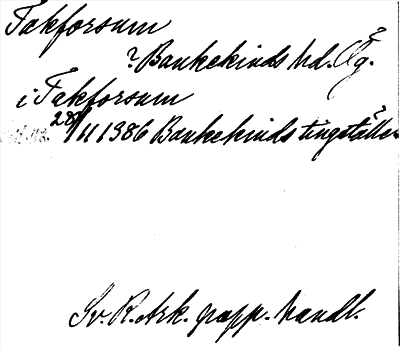 Takforsum
? Bankekinds hd. Ög.
i Takforsum
28/11 1386 Bankekinds tingställe
Sv. R. Ark. papp. handl.